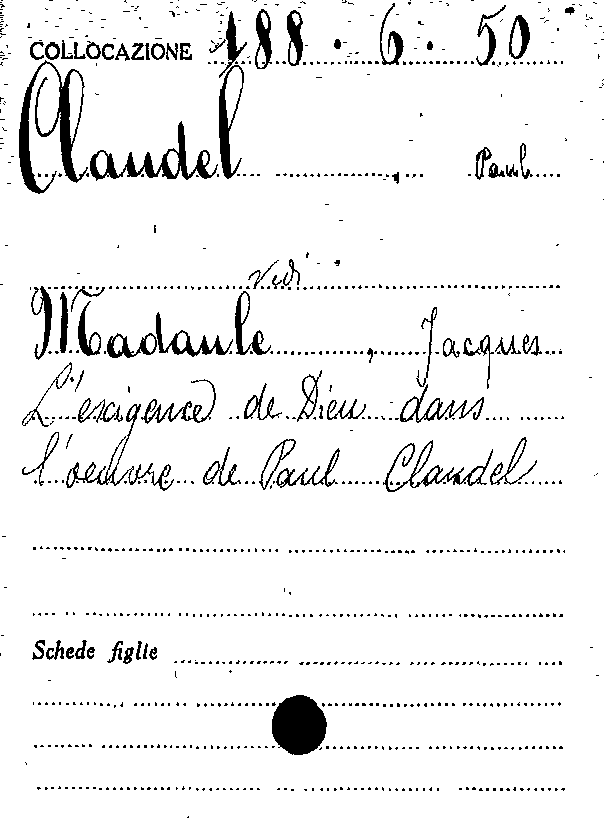 COLLOCAZIONE 188 . 6 . 50
Claudel , Paul
vedi
Madaule , Jacques
L'exigence de Dieu dans
l'oeuvre de Paul Claudel
Schede figlie